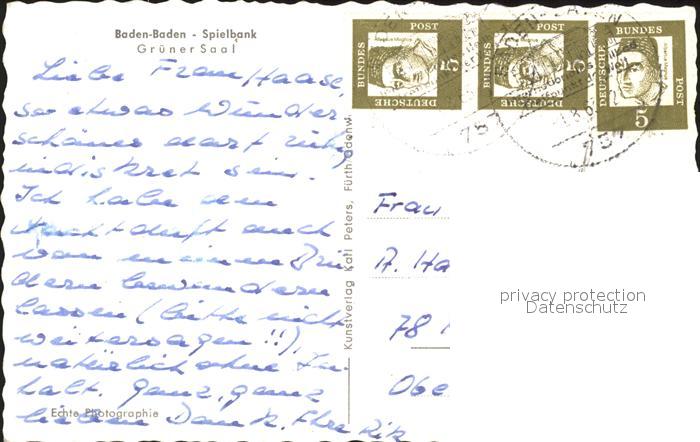 Baden-Baden - Spielbank
Grüner Saal
Liebe Frau Haase,
so etwas Wunder
schönes darf ruhig
indiskret sein.
Ich habe den
duft auch
von meinen Brü
dern bewundern
lassen (bitte nicht
weitersagen!!),
natürlich ohne In-
halt. Ganz, ganz
lieben Dank. Ihre
Echte Photographie
Kunstverlag Karl Peters, Fürth-Odenw.
DEUTSCHE BUNDESPOST
5
DEUTSCHE BUNDESPOST
5
DEUTSCHE BUNDESPOST
5
Albertus Magnus
757
757
Frau
A. Ha
78
Obe
privacy protection
Datenschutz